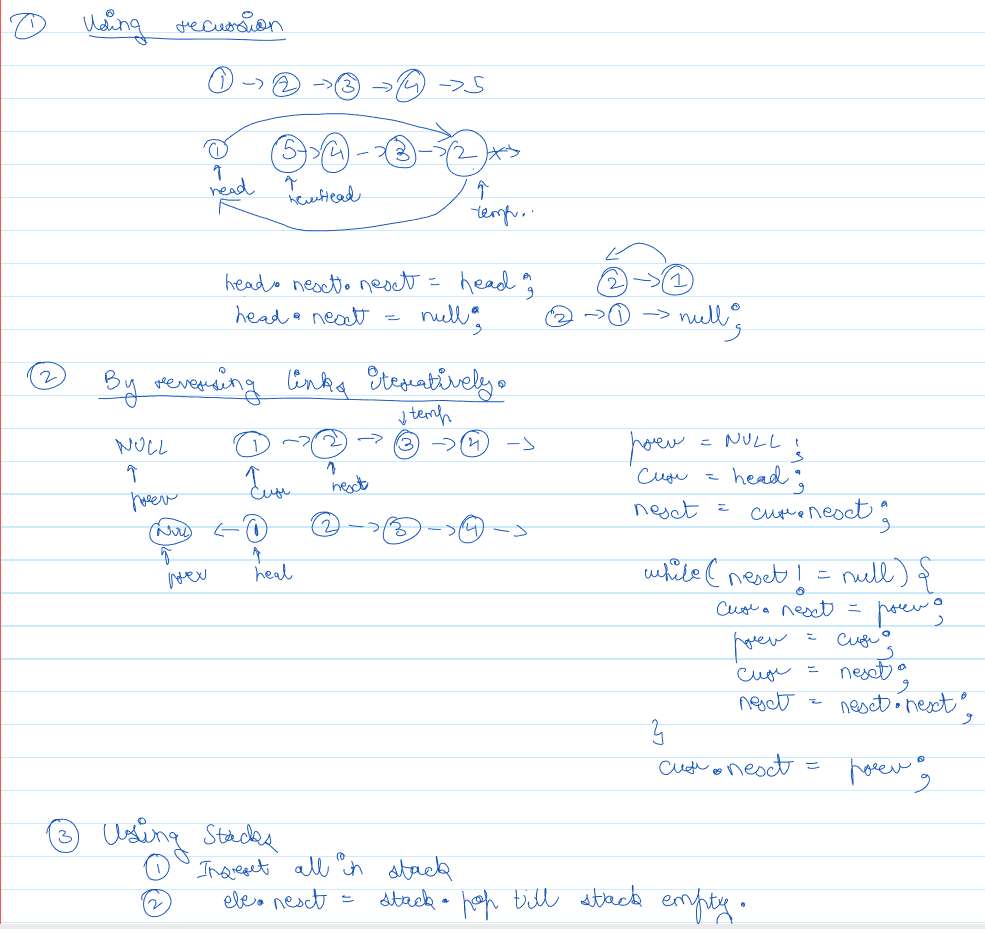 ① Using recursion
① -> ② -> ③ -> ④ -> 5
① ⑤ -> ④ -> ③ -> ② ->
head newHead temp..
head.next.next = head; ② -> ①
head.next = null; ② -> ① -> null;
② By reversing links iteratively.
↓ temp
NULL ① -> ② -> ③ -> ④ ->
prev curr next
NULL <- ① ② -> ③ -> ④ ->
prev head
prev = NULL;
curr = head;
next = curr.next;
while(next != null) {
curr.next = prev;
prev = curr;
curr = next;
next = next.next;
}
curr.next = prev;
③ Using Stacks
① Insert all in stack
② ele.next = stack.pop till stack empty.